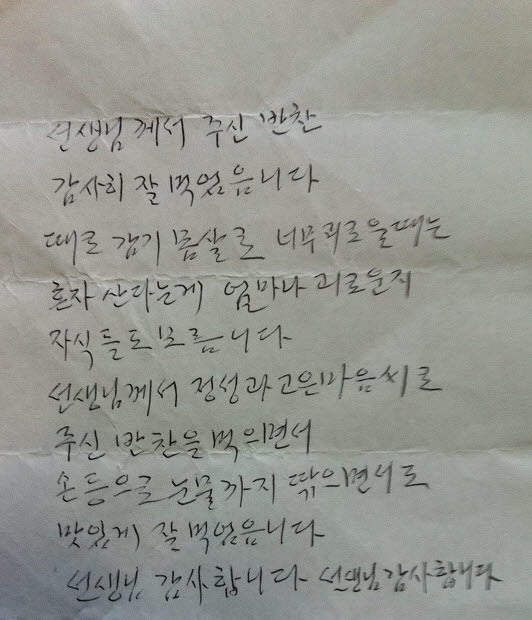 선생님께서 주신 반찬
감사히 잘 먹었읍니다
때로 감기 몸살로 너무괴로울때는
혼자 산다는게 얼마나 괴로운지
자식들도 모릅니다
선생님께서 정성과고은마음씨로
주신 반찬을 먹으면서
손등으로 눈물까지 딲으면서도
맛있게 잘 먹었읍니다
선생님 감사합니다 선생님감사합니다